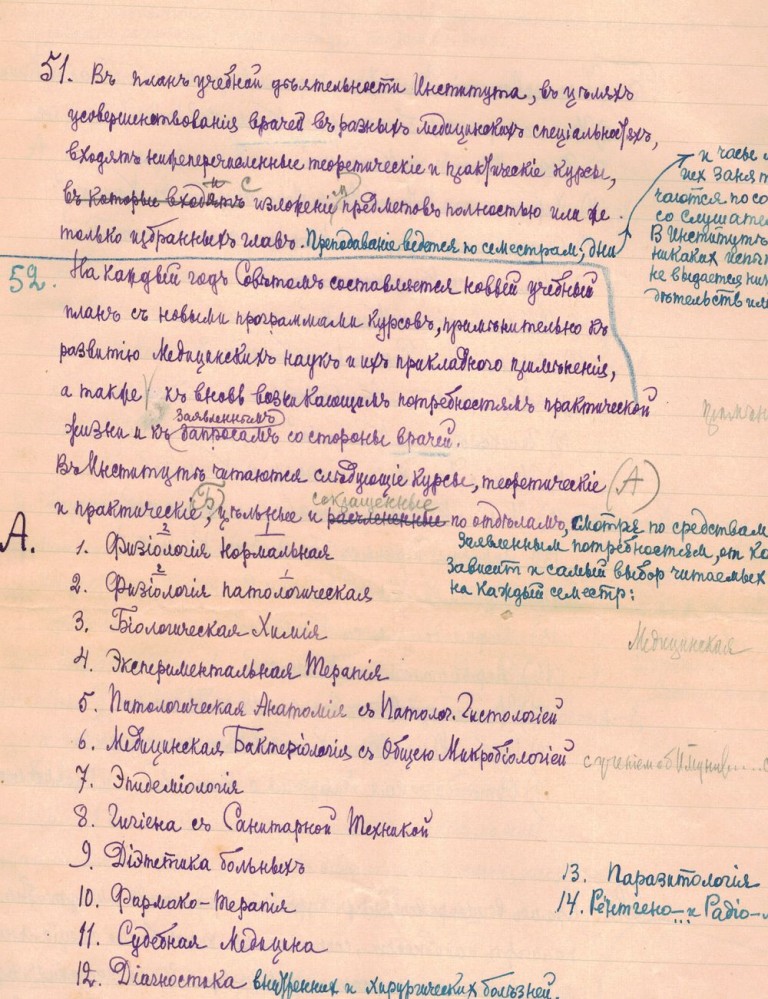 51. Въ планъ учебной дѣятельности Института, въ цѣляхъ
усовершенствованія врачей въ разныхъ медицинскихъ спеціальностяхъ,
входятъ нижеперечисленные теоретическіе и практическіе курсы,
въ которые входятъ и с изложеніемъ предметовъ полностью или же
только избранныхъ главъ. Преподаваніе ведется по семестрам, дни
и часы
их занят
чаются по со
со слушател
В Институтѣ
никаких испыт
не выдается ни
дѣтельств или
52. На каждый годъ Совѣтомъ составляется новый учебный
планъ съ новыми программами курсовъ, примѣнительно къ
развитію медицинскихъ наукъ и ихъ прикладного примѣненія,
а также къ вновь возникающимъ потребностямъ практической
заявленнымъ
жизни и къ запросамъ со стороны врачей.
Въ Институтѣ читаются слѣдующіе курсы, теоретическіе (А)
и практическіе (Б), цѣльные и расчлененные сокращенные по отдѣламъ, смотря по средствам
заявленным потребностям, от ко
зависит и самый выбор читаемых
на каждый семестр:
А.
1. Физіологія нормальная
2. Физіологія патологическая
3. Біологическая Химія
Медицинская
4. Экспериментальная Терапія
5. Патологическая Анатомія съ Патолог. Гистологіей
6. Медицинская Бактеріологія съ Общею Микробіологіей
7. Эпидеміологія
8. Гигіена съ Санитарной Техникой
9. Діэтетика больныхъ
10. Фармако-терапія
11. Судебная Медицина
12. Діагностика внутренних и хирургических болѣзней.
13. Паразитологія
14. Рентгено... и Радіо-